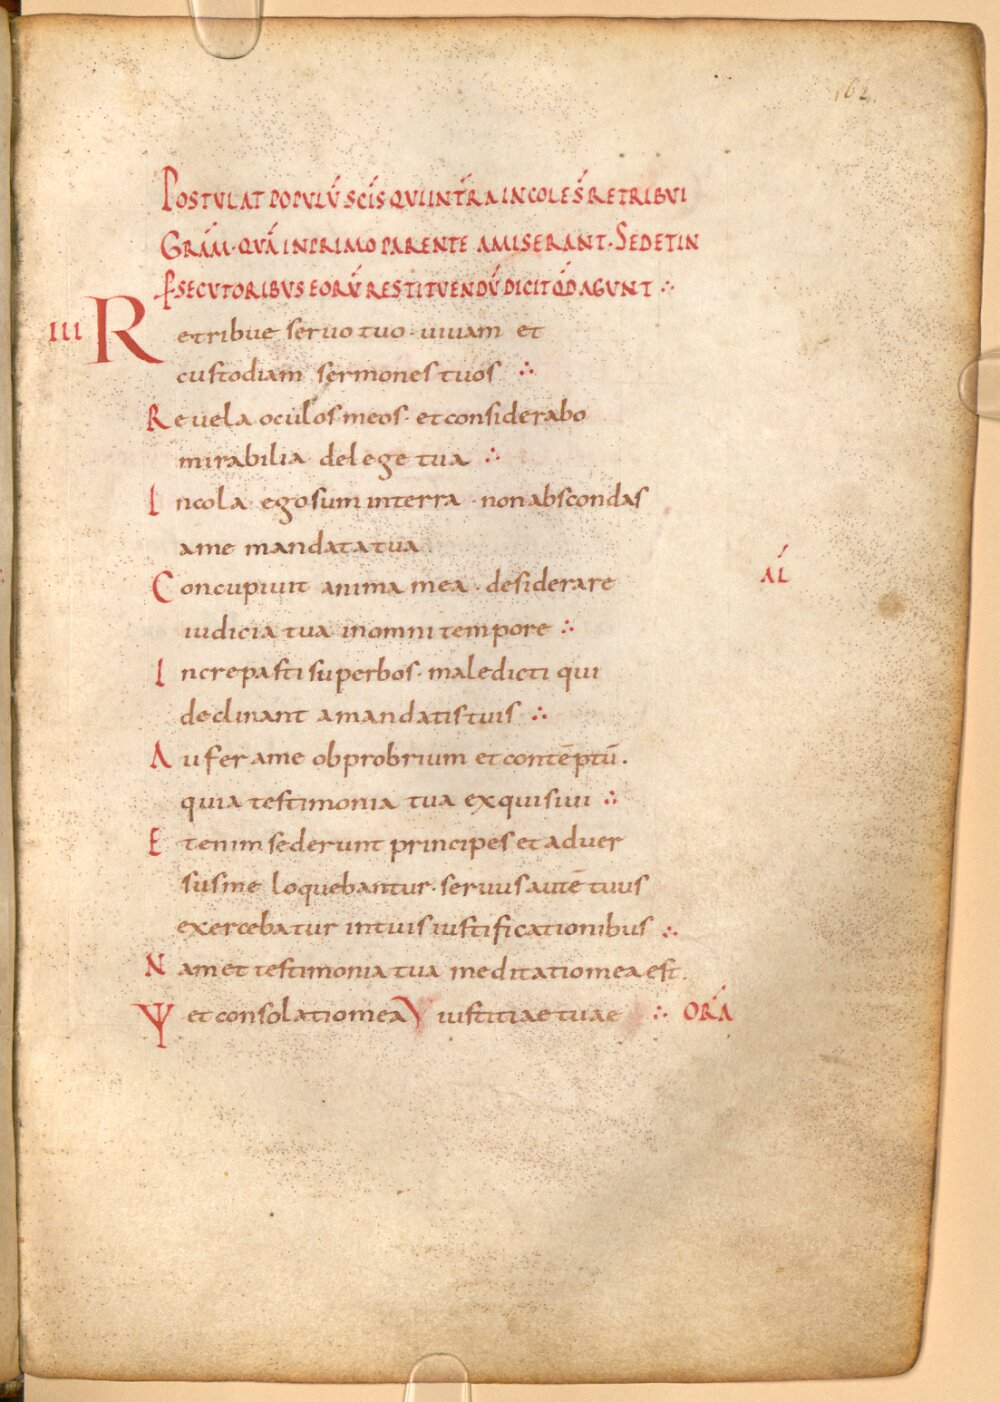 162.
POSTULAT POPULŪ SCĪS QUI INTRA INCOLES RETRIBUI
GRAM · QUĀ IN PRIMO PARENTE AMISERANT · SED ET IN
PSECUTORIBUS EORŪ RESTITUENDŪ DICIT QD AGUNT ∴
III Retribue seruo tuo · uiuam et
custodiam sermones tuos ∴
Reuela oculos meos · et considerabo
mirabilia de lege tua ∴
Incola ego sum in terra · non abscondas
a me mandata tua
Concupiuit anima mea · desiderare
AL
iudicia tua in omni tempore ∴
Increpasti superbos · maledicti qui
declinant a mandatis tuis ∴
Aufer a me obprobrium et contēptū ·
quia testimonia tua exquisiui ∴
Etenim sederunt principes et aduer
sus me loquebantur · seruus autē tuus
exercebatur in tuis iustificationibus ∴
Nam et testimonia tua meditatio mea est ·
Ψ et consolatio mea iustitiae tuae ∴ ORA